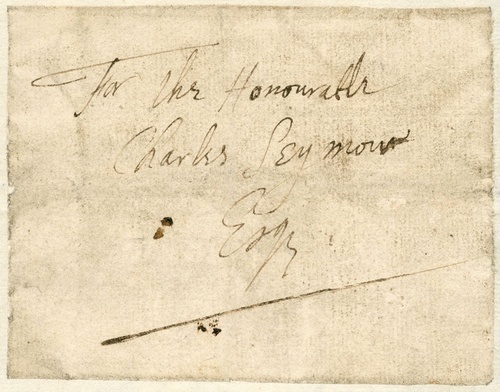 For the Honourable
Charles Seymour
Esqr